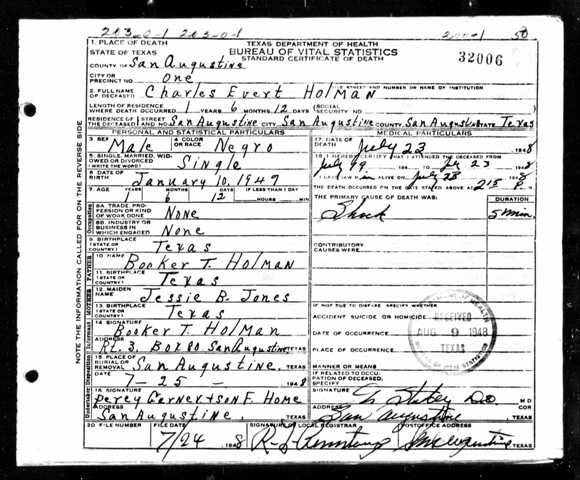 213-0-1 213-0-1
50
1. PLACE OF DEATH
STATE OF TEXAS
TEXAS DEPARTMENT OF HEALTH
BUREAU OF VITAL STATISTICS
STANDARD CERTIFICATE OF DEATH
32006
COUNTY OF San Augustine
CITY OR PRECINCT NO. One
STREET AND NUMBER OR NAME OF INSTITUTION
2. FULL NAME OF DECEASED Charles Evert Holman
LENGTH OF RESIDENCE WHERE DEATH OCCURRED 1 YEARS 6 MONTHS 12 DAYS
SOCIAL SECURITY NO.
RESIDENCE OF THE DECEASED STREET AND NO. San Augustine CITY San Augustine COUNTY San Augustine STATE Texas
PERSONAL AND STATISTICAL PARTICULARS
3. SEX Male
4. COLOR OR RACE Negro
5. SINGLE, MARRIED, WIDOWED OR DIVORCED (WRITE THE WORD) Single
6. DATE OF BIRTH January 10, 1947
7. AGE YEARS MONTHS DAYS IF LESS THAN 1 DAY
6 12 HOURS MIN
8A. TRADE, PROFESSION OR KIND OF WORK DONE None
8B. INDUSTRY OR BUSINESS IN WHICH ENGAGED None
9. BIRTHPLACE (STATE OR COUNTRY) Texas
10. NAME Booker T. Holman
11. BIRTHPLACE (STATE OR COUNTRY) Texas
12. MAIDEN NAME Jessie B. Jones
13. BIRTHPLACE (STATE OR COUNTRY) Texas
14. SIGNATURE Booker T. Holman
ADDRESS Rt. 3. Box 80 San Augustine TEXAS
15. PLACE OF BURIAL OR REMOVAL San Augustine, TEXAS
DATE 7-25- 1948
16. SIGNATURE Percy Garnert & son F. Home
ADDRESS San Augustine, TEXAS
MEDICAL PARTICULARS
17. DATE OF DEATH July 23 1948
18. I HEREBY CERTIFY THAT I ATTENDED THE DECEASED FROM
July 23 1948
ALIVE ON July 1948
THE DEATH OCCURRED ON THE DATE STATED ABOVE AT 2:15 P. M.
THE PRIMARY CAUSE OF DEATH WAS: DURATION
Shock 5 min
CONTRIBUTORY CAUSES WERE:
IF NOT DUE TO DISEASE, SPECIFY WHETHER
ACCIDENT SUICIDE OR HOMICIDE
DATE OF OCCURRENCE
PLACE OF OCCURRENCE
MANNER OR MEANS
IF RELATED TO OCCUPATION OF DECEASED, SPECIFY
SIGNATURE DO M D
ADDRESS San Augustine TEXAS
RECEIVED
AUG 9 1948
TEXAS
BUREAU OF VITAL STATISTICS
20 FILE NUMBER
FILE DATE 7/24 1948
SIGNATURE OF LOCAL REGISTRAR
POSTOFFICE ADDRESS San Augustine TEXAS
NOTE THE INFORMATION CALLED FOR ON THE REVERSE SIDE
Occupation
FATHER
MOTHER
Informant
Undertaker